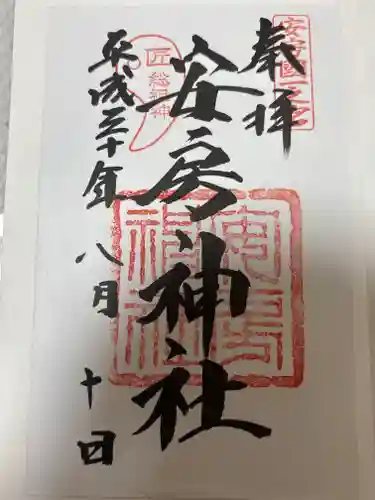 奉拝
安房國一之宮
安房神社
匠総祖神
平成三十年八月十日
安房神社